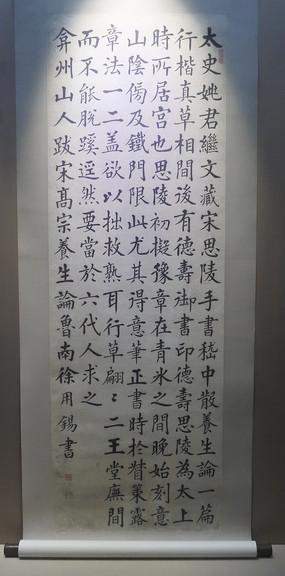 太史姚君繼文藏宋思陵手書嵇中散養生論一篇
行楷真草相間後有德壽御書印德壽思陵為太上
時所居宮也思陵初擬豫章在青米之間晚始刻意
山陰傍及鐵門限此尤其得意筆正書時於督策露
章法一二蓋欲以拙救熟耳行草翩〻二王堂廡間
而不能脫蹊逕然要當於六代人求之
弇州山人跋宋高宗養生論魯南徐用錫書